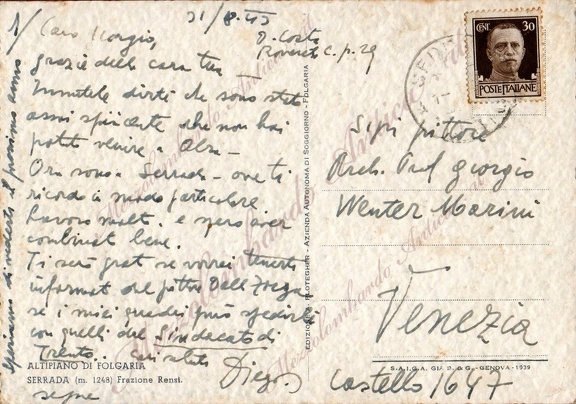 1/ Caro Giorgio,
31/8.43
D. Costa
Rovereto C.p. 29
grazie della cara tua
Inutile dirti che sono stato
assai spiacente che non hai
potuto venire a
Ora sono a Serrada - ove ti
ricordo in modo particolare
Lavoro molt. e spero aver
combinat bene.
Ti serò grat se vorrai tenerti
informat del pittor Dell
se i miei quadri può spedire
con quelli del Sindacato di
Trento. cari saluti
Diego
speriamo di vederti il prossimo anno
ALTIPIANO DI FOLGARIA
SERRADA (m. 1248) Frazione Rensi.
EDIZIONE - AZIENDA AUTONOMA DI SOGGIORNO - FOLGARIA
CENT. 30
POSTE ITALIANE
Sign pittore
Arch. Prof giorgio
Wenter Marini
Venezia
Castello 1647
S.A.I.G.A. GIÀ B. & G. - GENOVA - 1939